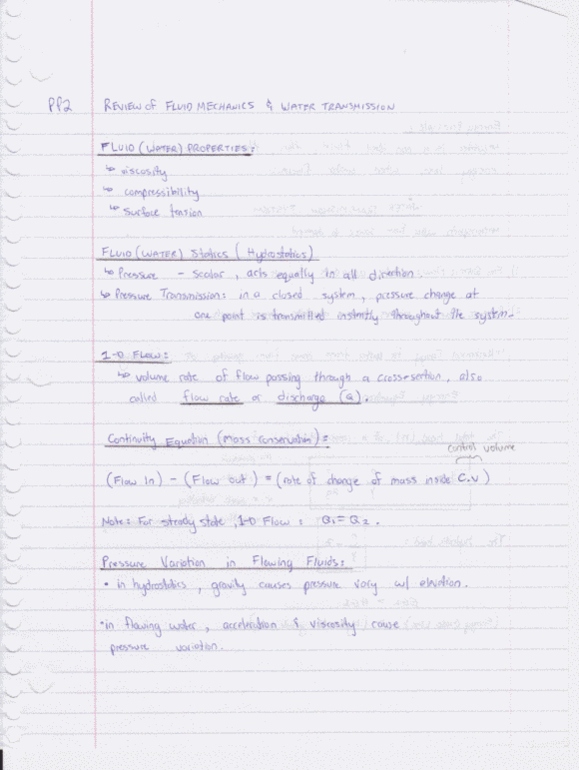 PP2 REVIEW OF FLUID MECHANICS & WATER TRANSMISSION
FLUID (WATER) PROPERTIES:
↳ viscosity
↳ compressibility
↳ Surface tension
FLUID (WATER) Statics (Hydrostatics)
↳ Pressure - scalar, acts equally in all direction
↳ Pressure Transmissions in a closed system, pressure change at
one point is transmitted instantly throughout the system.
1-D FLOW:
↳ volume rate of flow passing through a cross-section, also
called flow rate or discharge (Q).
Continuity Equation (mass conservation):
control volume
(Flow In) - (Flow out) = (rate of change of mass inside C.V)
Note: For steady state, 1-D Flow: Q1 = Q2.
Pressure Variation in Flowing Fluids:
• in hydrostatics, gravity causes pressure vary w/ elevation.
• in flowing water, acceleration & viscosity cause
pressure variation.